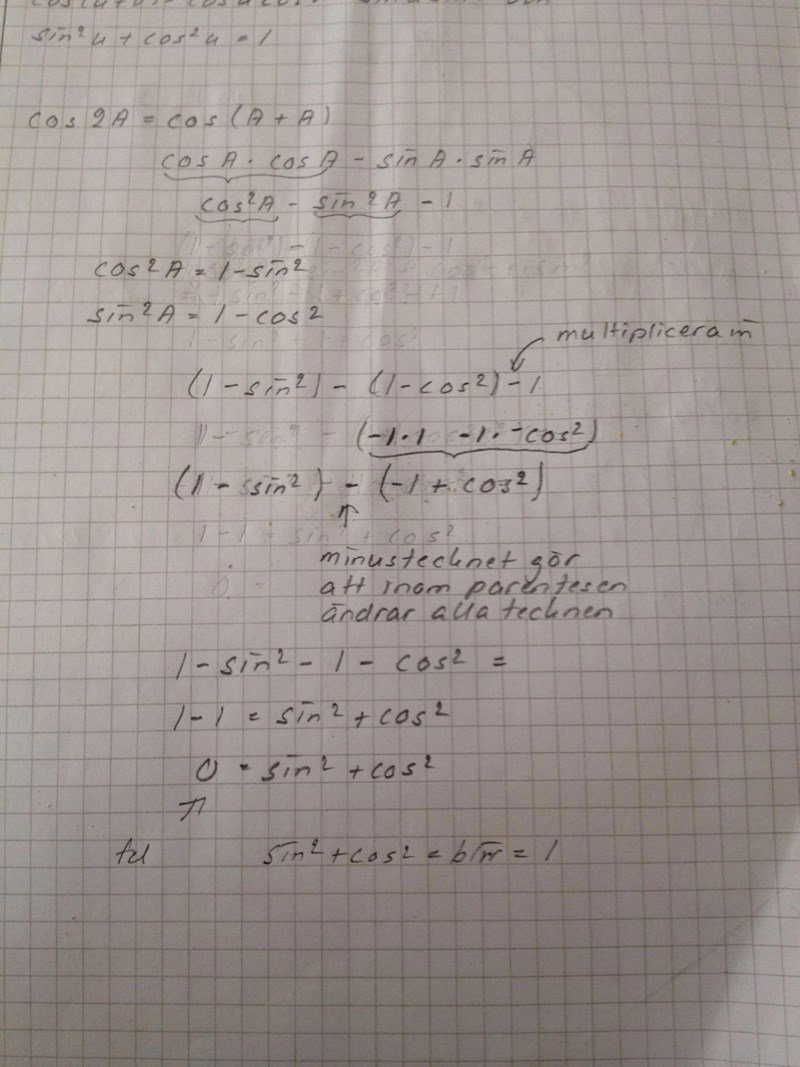 sin²u + cos²u = 1
cos 2A = cos (A + A)
cos A · cos A - sin A · sin A
cos²A - sin²A - 1
cos²A = 1 - sin²
sin²A = 1 - cos²
multiplicera in
(1 - sin²) - (1 - cos²) - 1
(-1·1 -1·-cos²)
(1 - sin²) - (-1 + cos²)
minustecknet gör
att inom parentesen
ändrar alla tecknen
1 - sin² - 1 - cos² =
1 - 1 = sin² + cos²
0 = sin² + cos²
sin² + cos² = blir = 1